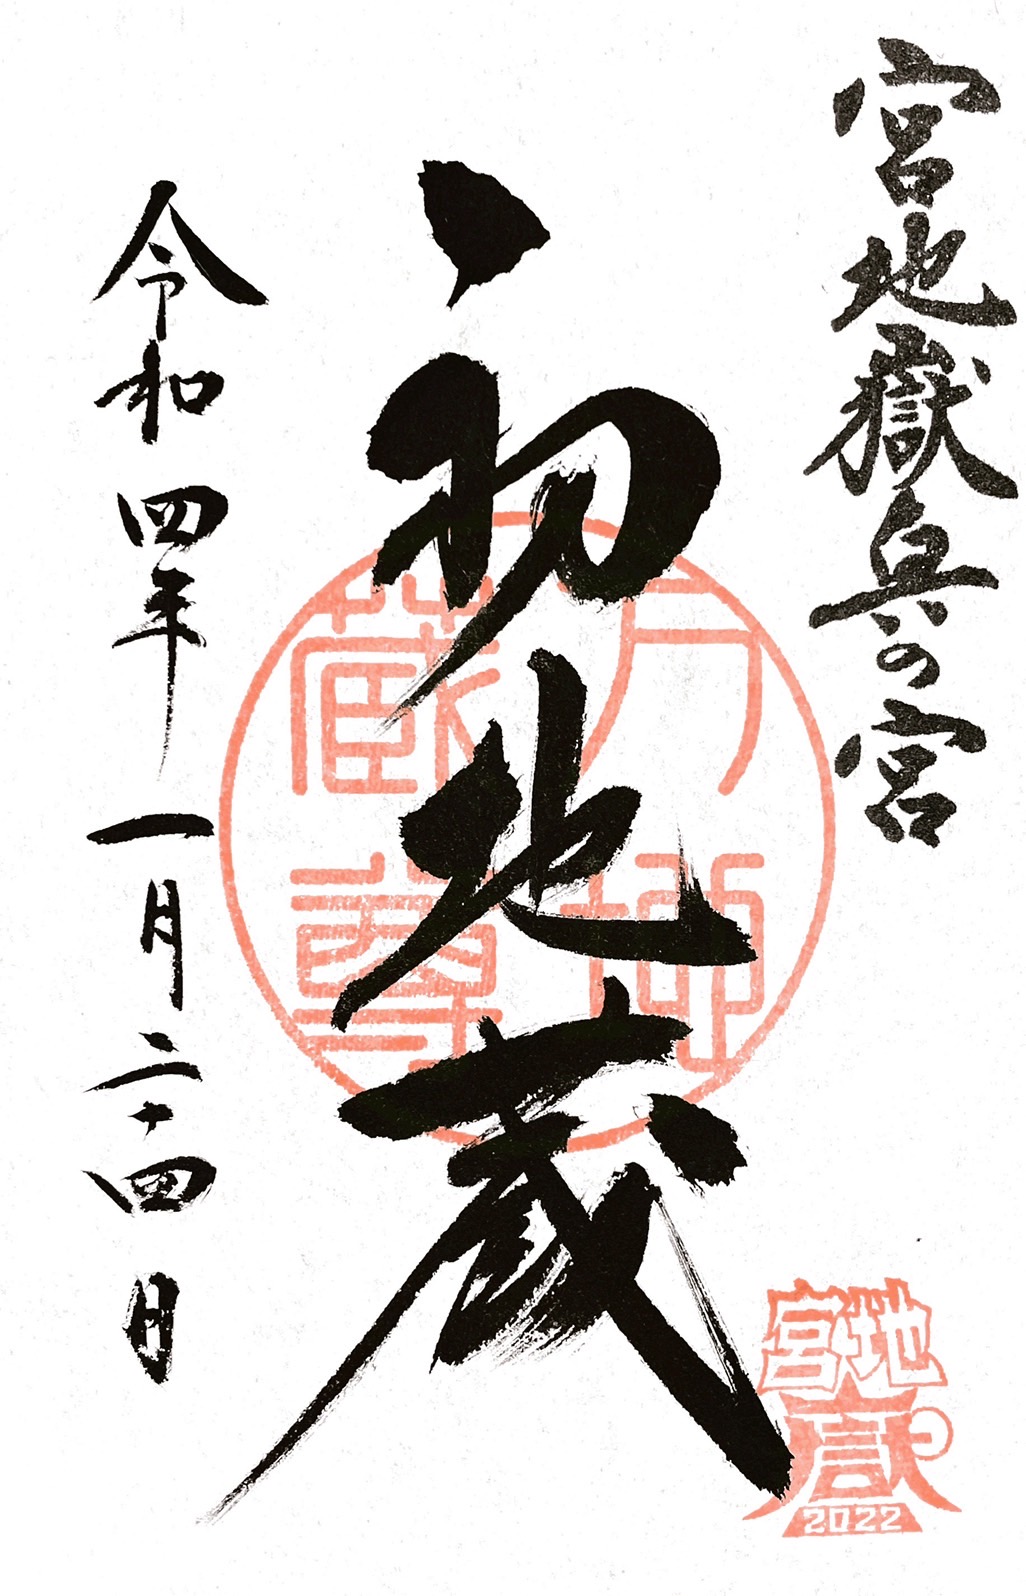 宮地嶽奥の宮
初地蔵
令和四年一月二十四日
万地
蔵尊
宮地
嶽
2022